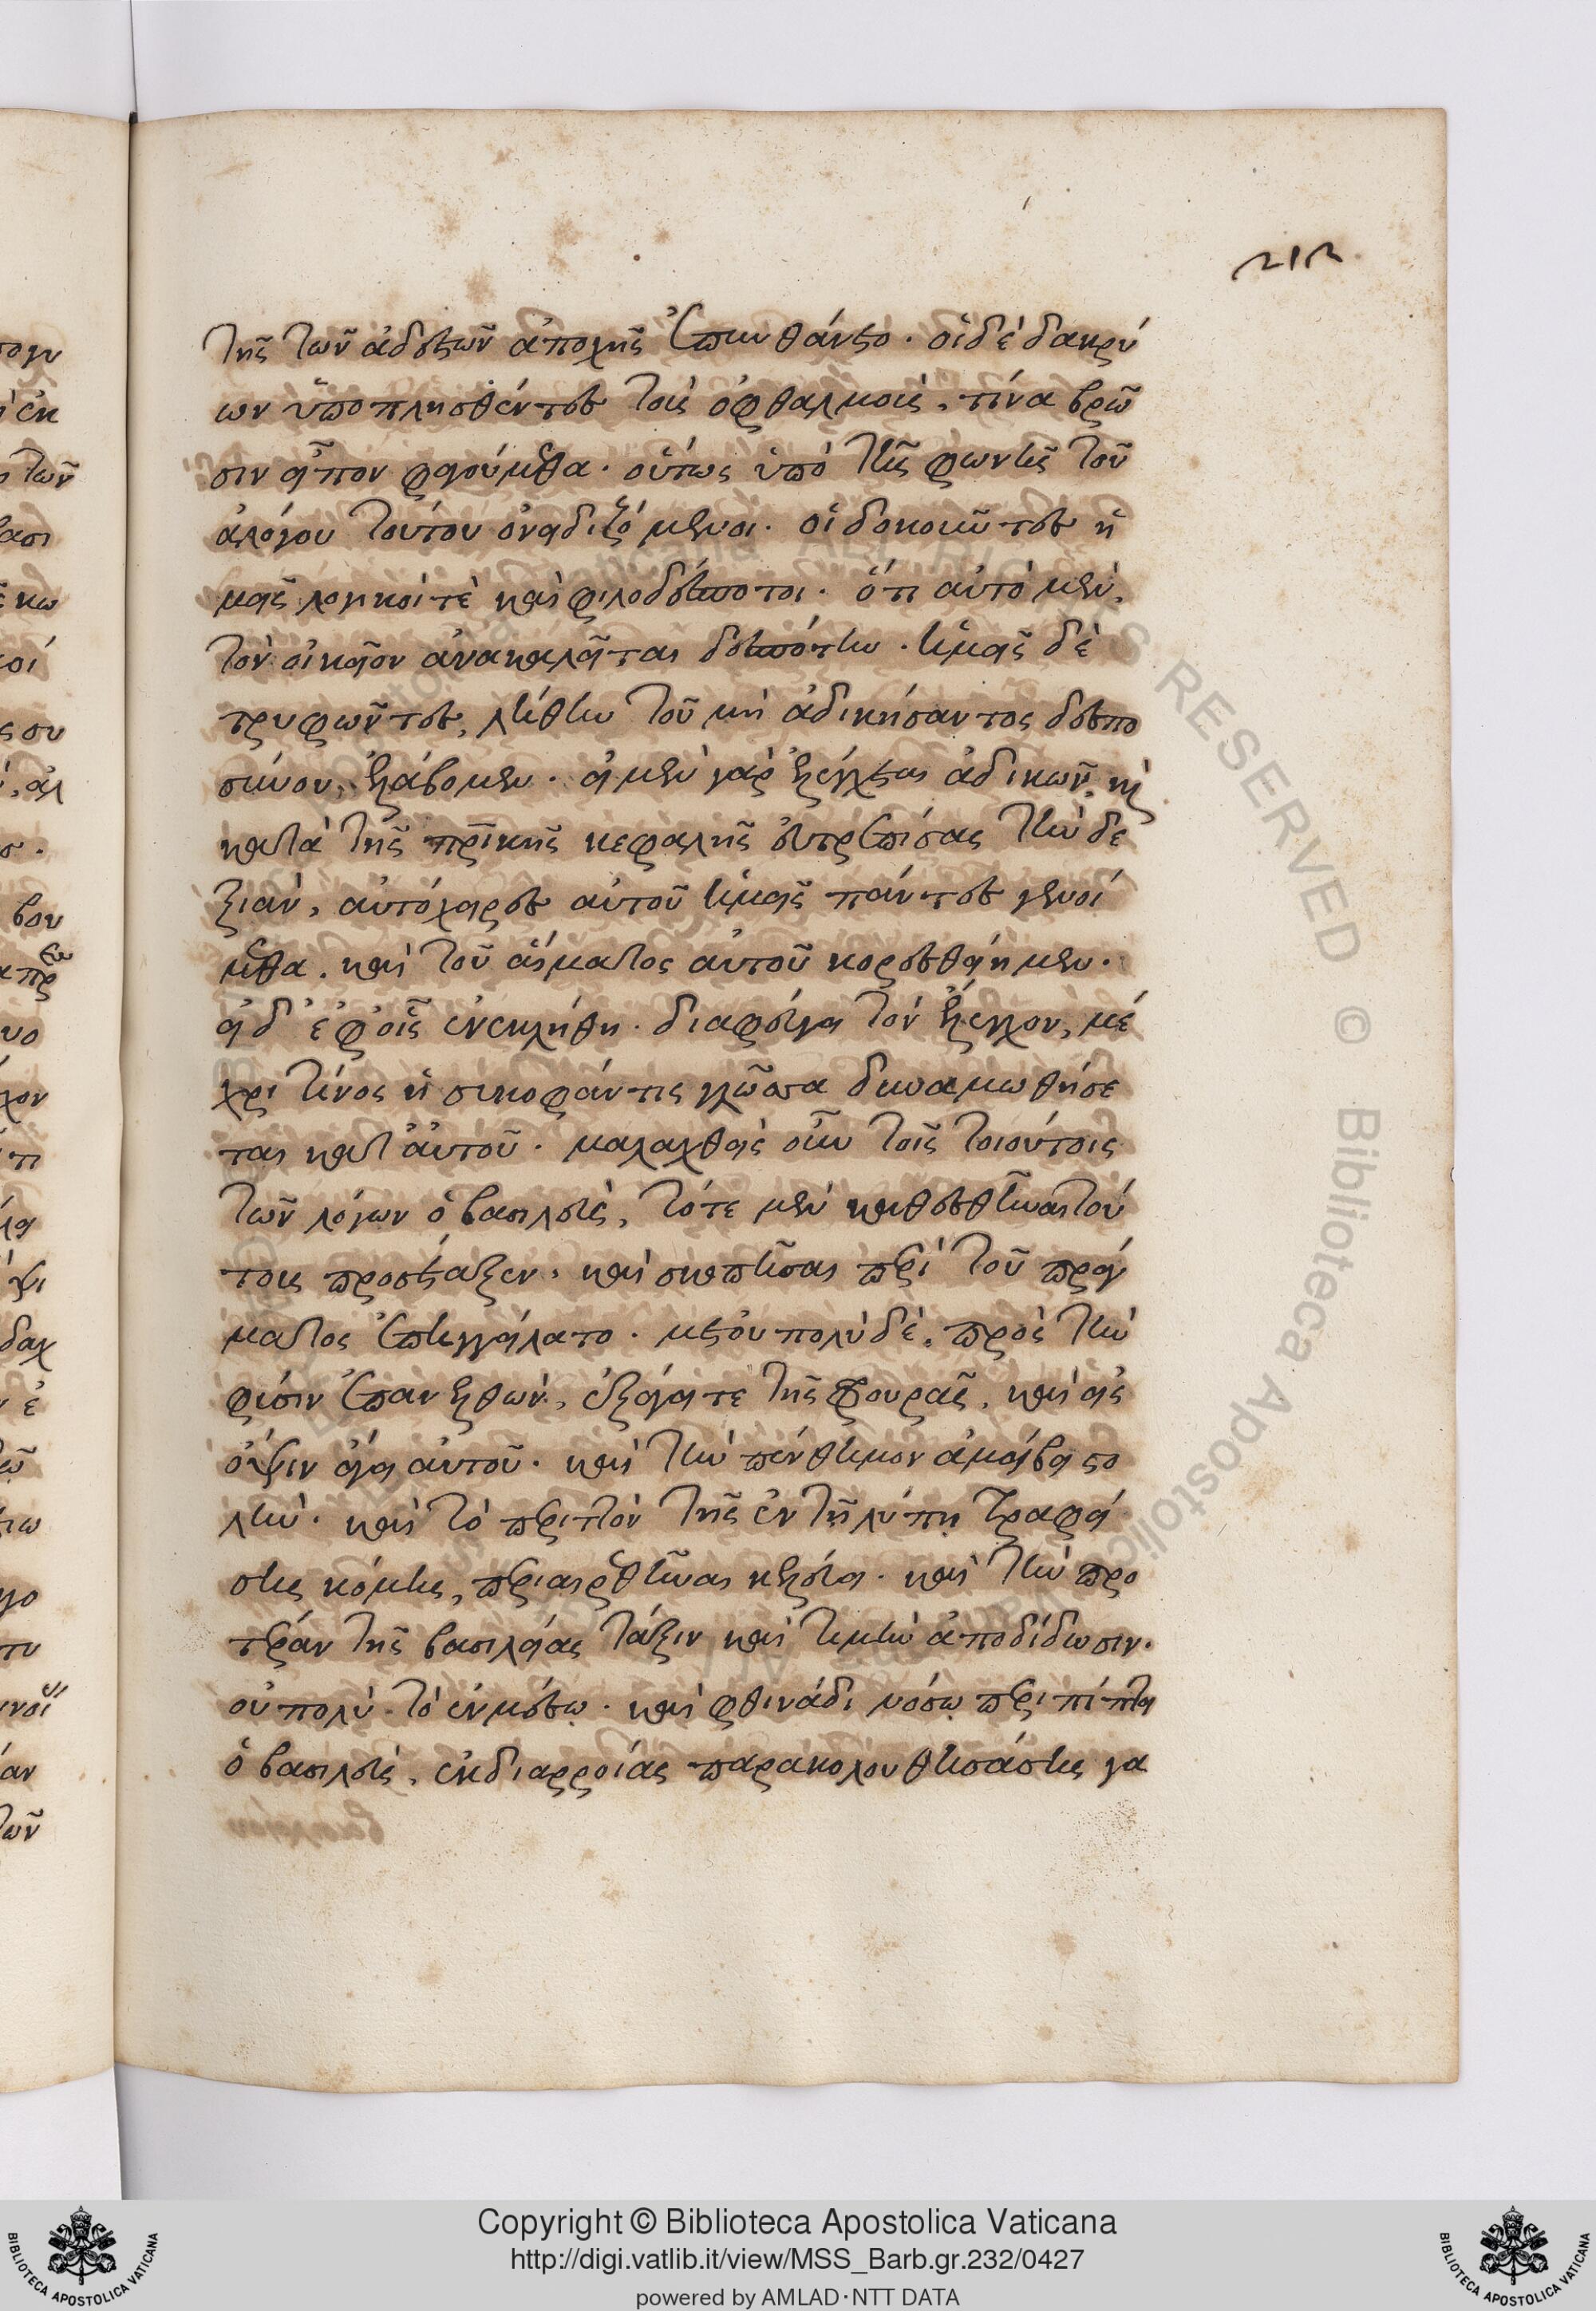 212
τῆς τῶν ἀδεστῶν ἀποχῆς ἐπυνθάνετο. οἱ δὲ δακρύ
ων ὑποπλησθέντες τοὺς ὀφθαλμοὺς, τίνα βρῶ
σιν εἶπον φαγούμεθα. οὕτως ὑπὸ τῆς φωνῆς τοῦ
ἀλόγου τούτου ὀνειδιζόμενοι. οἱ δοκοῦντες ἡ
μεῖς λογικοί τὲ καὶ φιλοδέσποτοι. ὅτι αὐτὸ μὲν,
τὸν οἰκεῖον ἀνακαλεῖται δεσπότην. ἡμεῖς δὲ
τρυφῶντες, λήθην τοῦ μὴ ἀδικήσαντος δεσπο
σύνου, ἐλάβομεν. εἰ μὲν γὰρ ἐλέγχεται ἀδικῶν, καὶ
κατὰ τῆς πρικῆς κεφαλῆς εὐτρεπίσας τὴν δε
ξιὰν, αὐτόχειρες αὐτοῦ ἡμεῖς πάντες γενοί
μεθα. καὶ τοῦ αἵματος αὐτοῦ κορεσθείημεν.
εἰ δ' ἐφ' οἷς ἐνεκλήθη. διαφεύγει τὸν ἔλεγχον, μέ
χρι τίνος ἡ συκοφάντις γλῶσσα δυναμωθήσε
ται κατ' αὐτοῦ. μαλαχθεὶς οὖν τοῖς τοιούτοις
τῶν λόγων ὁ βασιλεὺς, τότε μὲν καθεσθῆναι τού
τους προσέταξεν. καὶ σκοπῆσαι περὶ τοῦ πράγ
ματος ἐπηγγείλατο. μετ' οὐ πολὺ δὲ, πρὸς τὴν
φύσιν ἐπανελθὼν, ἐξάγει τε τῆς φρουρᾶς, καὶ εἰς
ὄψιν ἄγει αὐτοῦ. καὶ τὴν πένθιμον ἀμείβει στο
λὴν. καὶ τὸ περιττὸν τῆς ἐν τῇ λύπῃ τραφεί
σης κόμης, περιαιρεθῆναι κελεύει. καὶ τὴν προ
τέραν τῆς βασιλείας τάξιν καὶ τιμὴν ἀποδίδωσιν.
οὐ πολὺ τὸ ἐν μέσῳ. καὶ φθινάδι νόσῳ περιπίπτει
ὁ βασιλεὺς, ἐκ διαρροίας παρακολουθησάσης γα
Copyright © Biblioteca Apostolica Vaticana
http://digi.vatlib.it/view/MSS_Barb.gr.232/0427
powered by AMLAD·NTT DATA